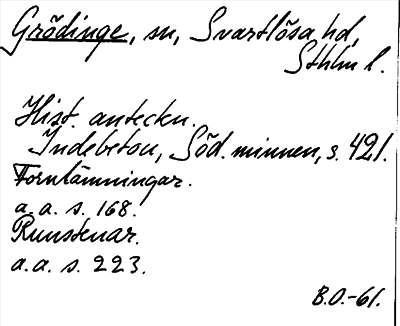 Grödinge, sn, Svartlösa hd,
Sthlm l.
Hist. anteckn.
Indebetou, Söd. minnen, s. 421.
Fornlämningar.
a. a. s. 168.
Runstenar.
a. a. s. 223.
B.O.-61.